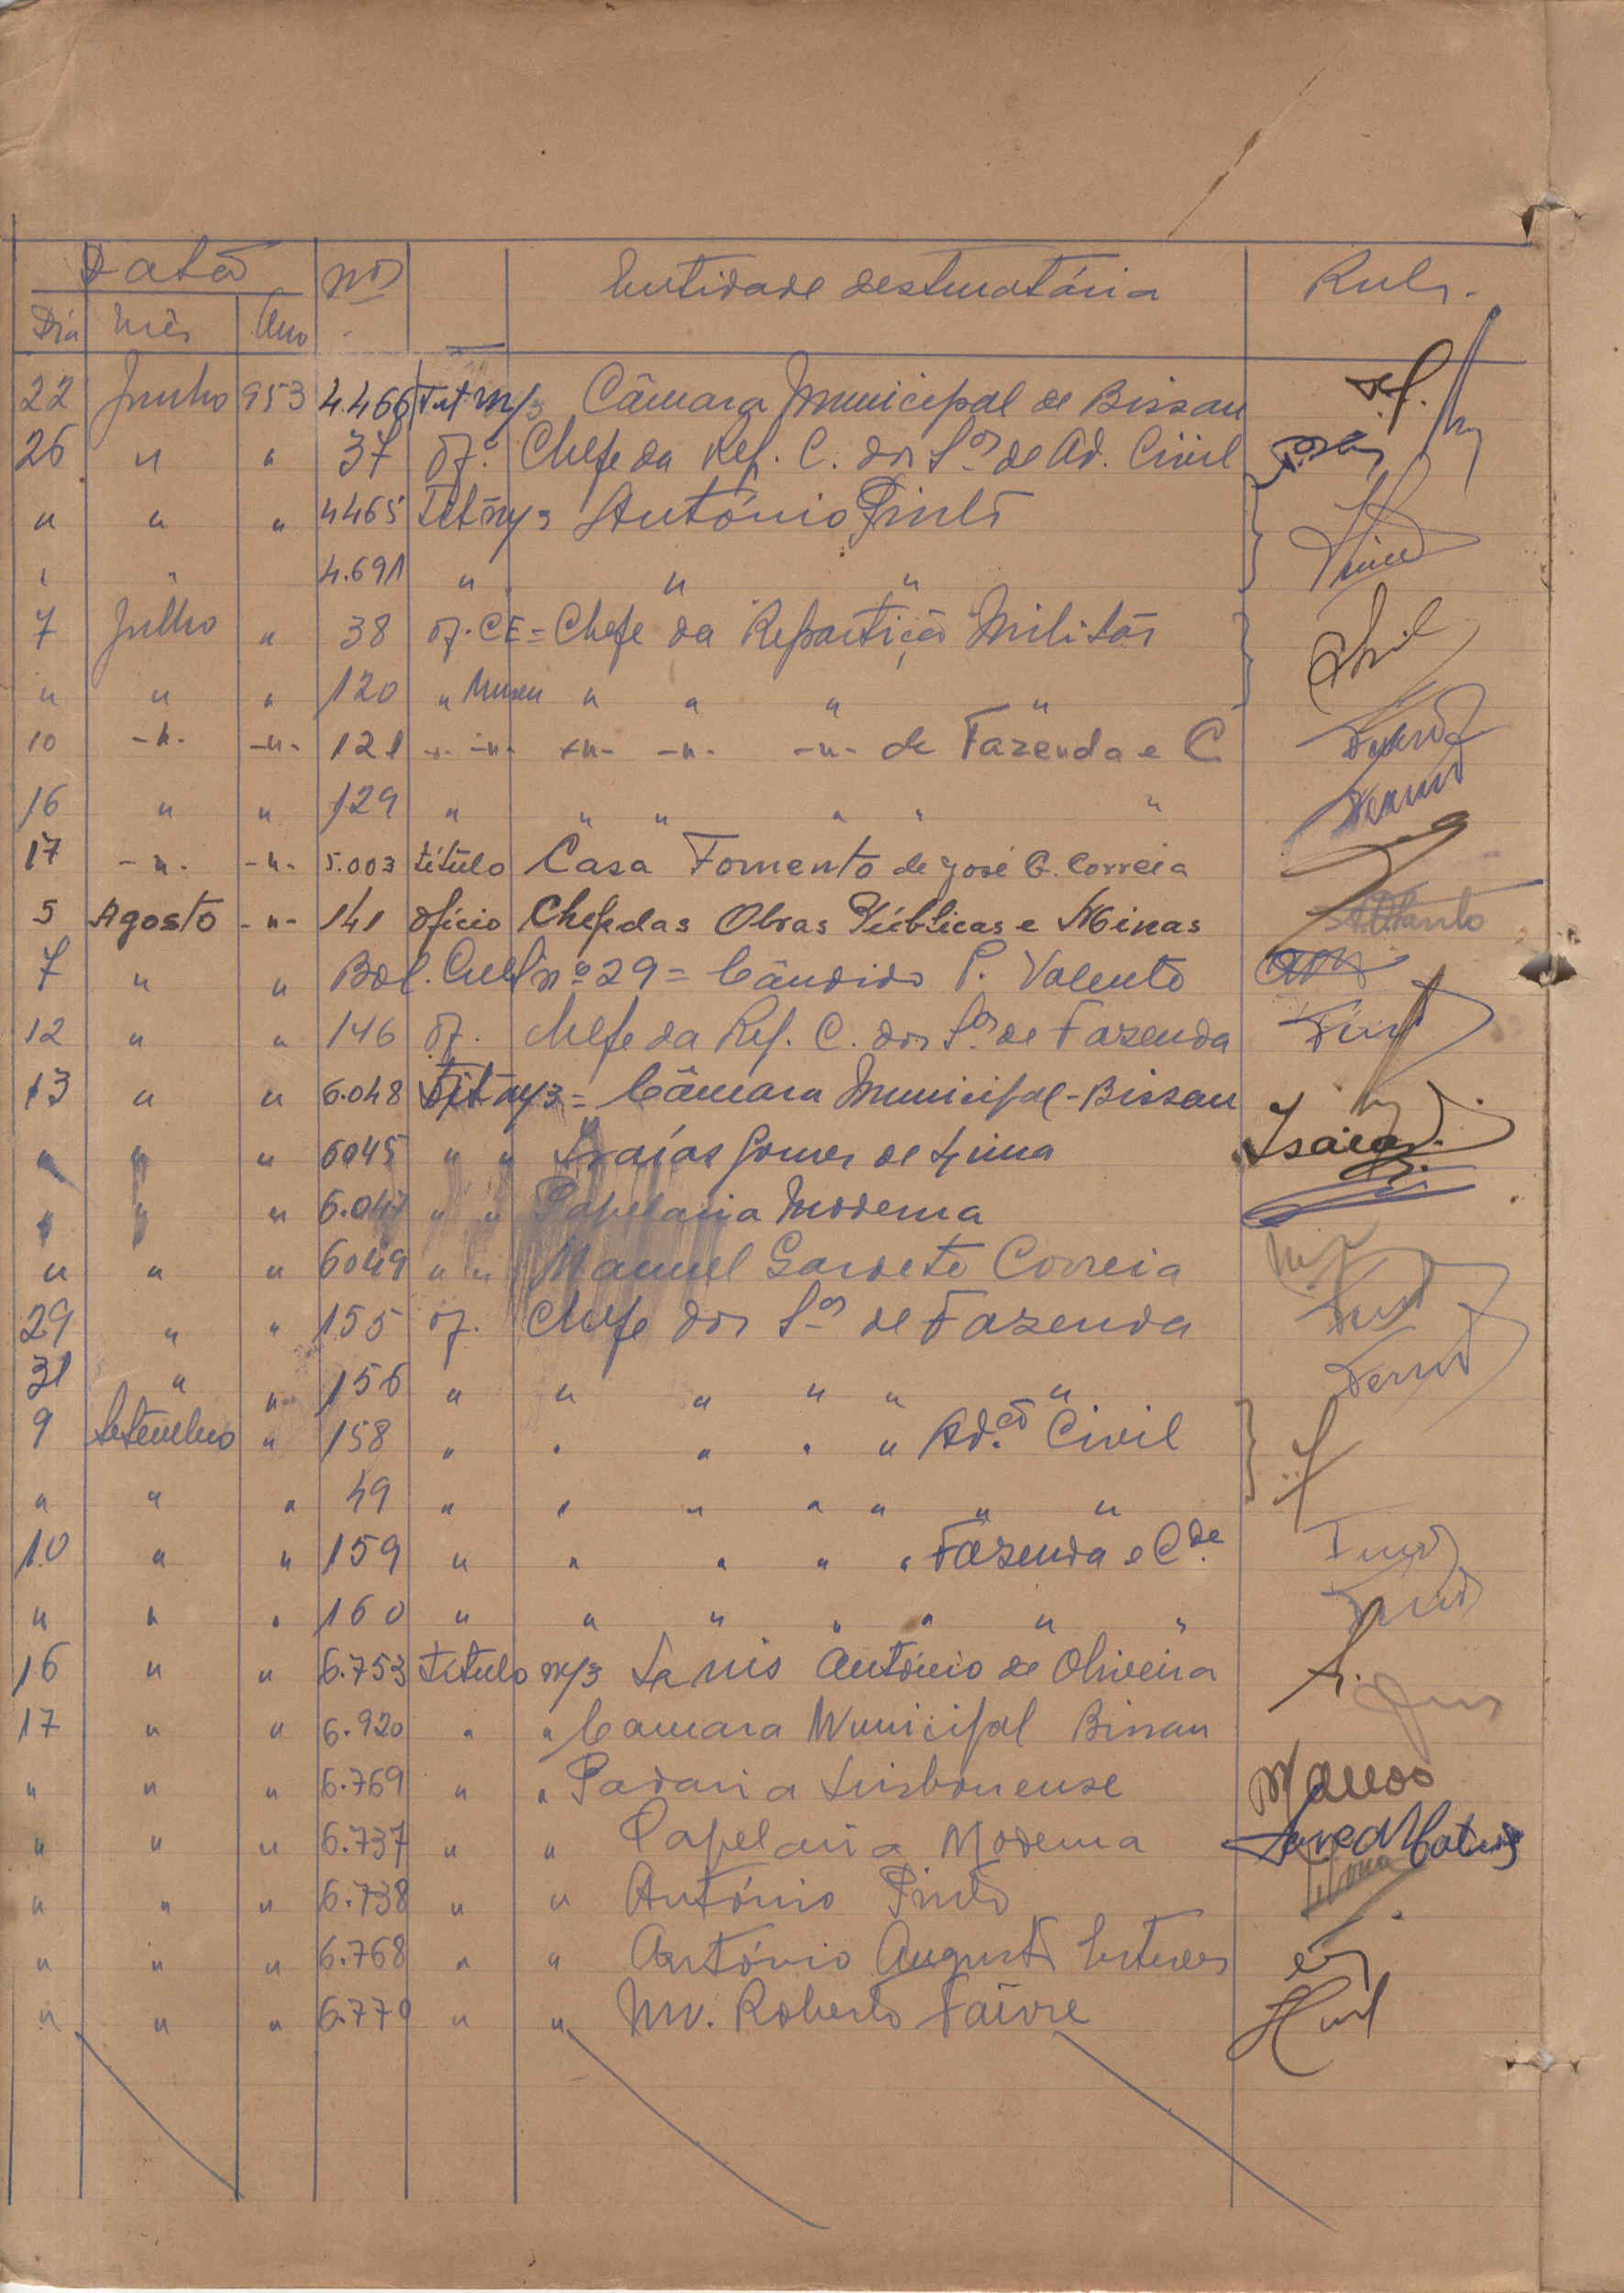 Data Nos Entidade destinatária Rubr.
Dia Mês Ano
22 Junho 953 4.466 Tít. m/3 Câmara Municipal de Bissau
26 " " 37 Of.º Chefe da Rep. C. dos S.os de Ad. Civil
" " " 4465 Tít. m/3 António Pinto
" " 4.691 " " "
7 Julho " 38 Of. CE = Chefe da Repartição Militar
" " " 120 " Museu " " " "
10 -"- -"- 121 -"- -"- -"- -"- -"- de Fazenda e C
16 " " 129 " " " " " "
17 -"- -"- 5.003 título Casa Fomento de José G. Correia
5 Agosto -"- 141 Ofício Chefe das Obras Públicas e Minas
7 " " Bol. nº 29 = Cândido P. Valente
12 " " 146 Of. Chefe da Rep. C. dos S.os de Fazenda
13 " " 6.048 Tít. m/3 = Câmara Municipal - Bissau
" " " 6045 " " Isaías Gomes de Lima Isaias
" " " 6.047 " " Papelaria Moderna
" " " 6049 " " Manuel Gardete Correia
29 " " 155 Of. Chefe dos S.os de Fazenda
31 " " 156 " " " " " "
9 Setembro " 158 " " " " " Ad.ção Civil
" " " 49 " " " " " " "
10 " " 159 " " " " " Fazenda e C.de
" " " 160 " " " " " " "
16 " " 6.753 título m/3 Luis António de Oliveira
17 " " 6.920 " " Camara Municipal Bissau
" " " 6.769 " " Padaria Lisbonense
" " " 6.737 " " Papelaria Moderna
" " " 6.738 " " António Pinto
" " " 6.768 " " António Augusto Esteves
" " " 6.770 " " Mv. Roberto Faivre